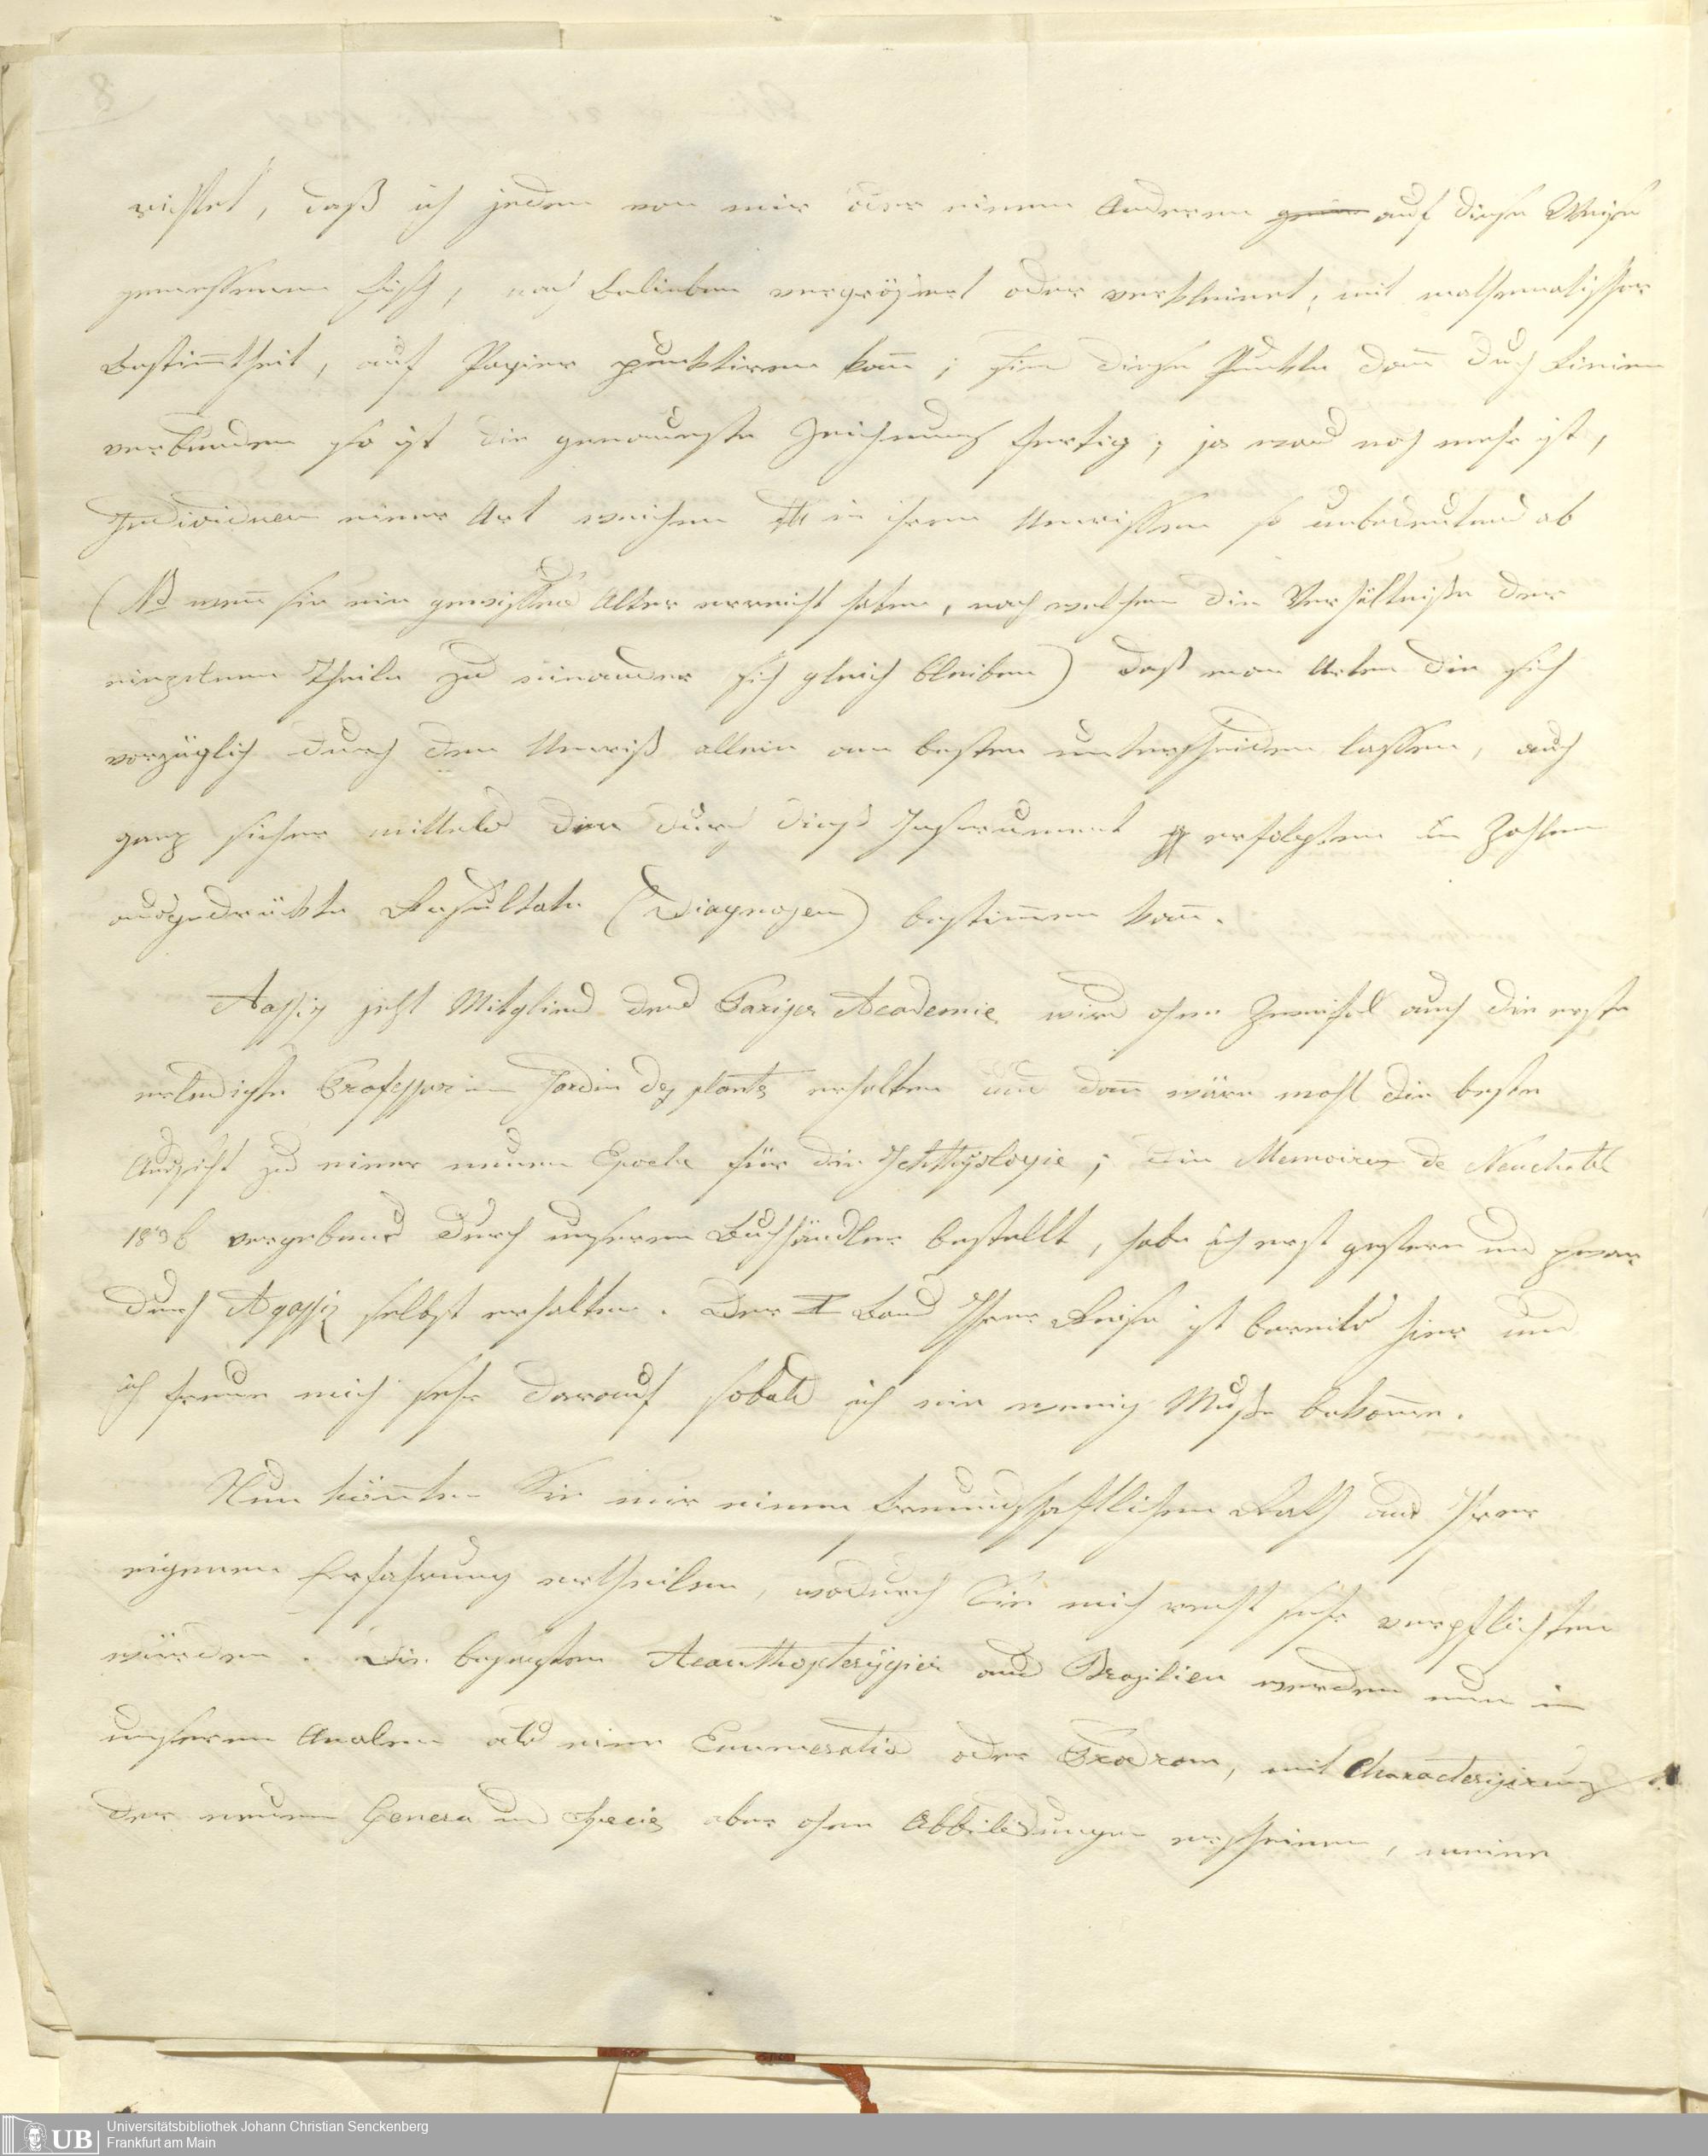 richtet, daß ich jeden von mir oder einem Anderen auf diese Weise
gemessenen Fisch, nach Belieben vergrößert oder verkleinert, mit mathematischer
Bestim̄theit, auf Papier punktiren kan̄; sind diese Punkte dan̄ durch Linien
verbunden so ist die genaueste Zeichnung fertig; ja was noch mehr ist,
Individuen einer Art weichen in ihren Umrissen so unbedeutend ab
(NB wen̄ sie ein gewisses Alter erreicht haben, nach welchem die Verhältniße der
einzelnen Theile zu einander sich gleich bleiben) daß man Arten die sich
vorzüglich durch den Umriß allein am besten unterscheiden lassen, auch
ganz sicher mittels der durch dieß Instrument erfolgten in Zahlen
ausgedrükte Resultate (Diagnosen) bestim̄en kan̄.
Aassiz jetzt Mitglied der Pariser Academie wird ohne Zweifel auch die erste
erledigte Professur im Jardin des plants erhalten und dan̄ wäre wohl die beste
Aussicht zu einer neuen Epoche für die Ichthyologie; die Memoires de Neuchatel
1836 vergebens durch unseren Buchhändler bestellt, habe ich erst gestern und zwar
durch Agassiz selbst erhalten. Der I Band Ihrer Reise ist bereits hier und
ich freue mich sehr darauf sobald ich ein wenig Muße bekom̄e.
Nun kön̄ten Sie mir einen freundschaftlichen Rath aus Ihrer
eigenen Erfahrung ertheilen, wodurch Sie mich recht sehr verpflichten
würden. Die besagten Acanthopterygier aus Brasilien werden nun in
unseren Analen als eine Enumeratio oder Prodrom, mit Characterisirung
der neuen Genera und Specis aber ohne Abbildungen erscheinen, meine
UB
Universitätsbibliothek Johann Christian Senckenberg
Frankfurt am Main